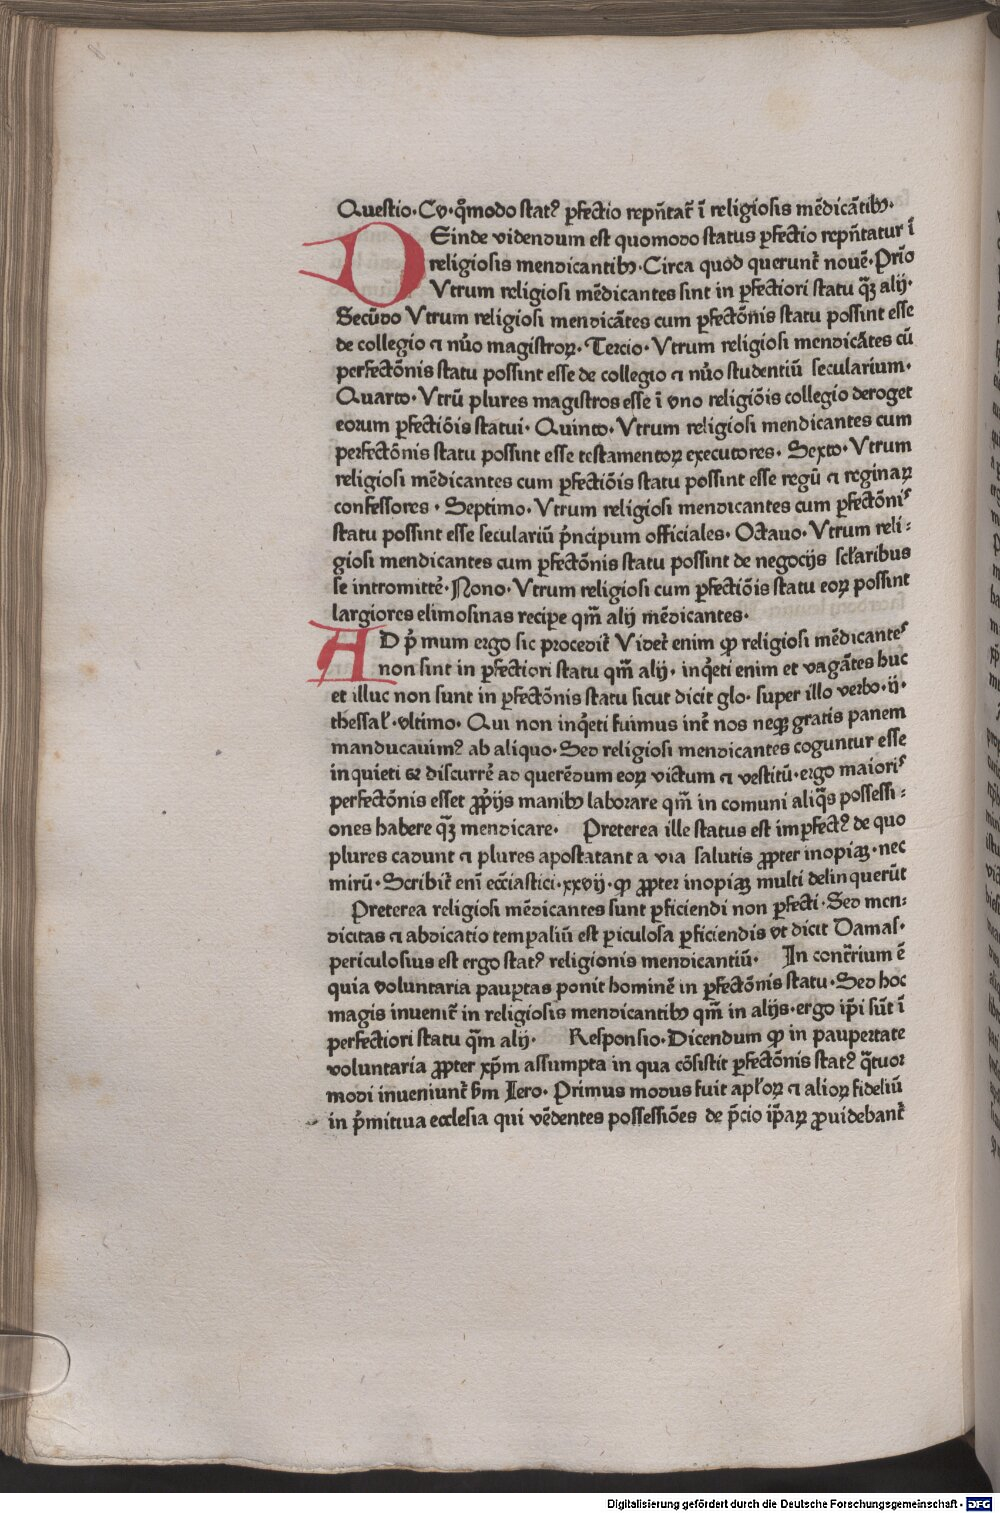 Questio·Cv·q̄modo statꝰ ꝑfectio repn̄tat᷑ ī religiosis mēdicātibꝫ·
DEinde videndum est quomodo status ꝑfectio repn̄tatur ī
religiosis mendicantibꝫ·Circa quod querunt᷑ nouē·Prīo
Vtrum religiosi mēdicantes sint in ꝑfectiori statu q̄ꝫ alij·
Secūdo Vtrum religiosi mendicātes cum ꝑfectōnis statu possint esse
de collegio ⁊ nu̾o magistroꝝ· Tercio·Vtrum religiosi mendicātes cū
perfectōnis statu possint esse de collegio ⁊ nu̾o studentiū secularium·
Quarto·Vtrū plures magistros esse ī vno religiōis collegio deroget
eorum ꝑfectiōis statui· Quinto·Vtrum religiosi mendicantes cum
perfectōnis statu possint esse testamentoꝝ executores· Sexto·Vtrum
religiosi mēdicantes cum ꝑfectiōis statu possint esse regū ⁊ reginaꝝ
confessores·Septimo·Vtrum religiosi mendicantes cum ꝑfectōniˢ
statu possint esse seculariū p̄ncipum officiales·Octauo·Vtrum reli⸗
giosi mendicantes cum ꝑfectōnis statu possint de negocijs scl̄aribus
se intromitte᷑·Nono·Vtrum religiosi cum ꝑfectiōis statu eoꝝ possint
largiores elimosinas recipe qm̄ alij mēdicantes·
AD p̄mum ergo sic procedit᷑ Videt᷑ enim ꝙ religiosi mēdicanteˢ
non sint in ꝑfectiori statu qm̄ alij·inq̄eti enim et vagātes huc
et illuc non sunt in ꝑfectōnis statu sicut dicit glo·super illo verbo·ij·
thessal̄·vltimo·Qui non inq̄eti fuimus int᷑ nos neqꝫ gratis panem
manducauimꝰ ab aliquo·Sed religiosi mendicantes coguntur esse
inquieti ⁊ discurre᷑ ad querēdum eoꝝ victum ⁊ vestitū·ergo maioriˢ
perfectōnis esset ꝓp̄ijs manibꝫ laborare qm̄ in comuni aliq̄s possessi⸗
ones habere q̄ꝫ mendicare· Preterea ille status est imꝑfectꝰ de quo
plures cadunt ⁊ plures apostatant a via salutis ꝓpter inopiaꝫ·nec
mirū·Scribit᷑ eni̅ ecc̄iastici·xxvij·ꝙ ꝓpter inopiaꝫ multi delinquerūt
Preterea religiosi mēdicantes sunt ꝑficiendi non ꝑfecti·Sed men⸗
dicitas ⁊ abdicatio tempaliū est ꝑiculosa ꝑficiendis vt dicit Damas·
periculosius est ergo statꝰ religionis mendicantiū· In cont᷑rium ē
quia voluntaria pauꝑtas ponit hominē in ꝑfectōnis statu·Sed hoc
magis inuenit᷑ in religiosis mendicantibꝫ qm̄ in alijs·ergo ip̄i sūt ī
perfectiori statu qm̄ alij· Responsio·Dicendum ꝙ in paupertate
voluntaria ꝓpter xp̄m assumpta in qua cōsistit ꝑfectōnis statꝰ q̄tuor
modi inueniunt᷑ ẜm Iero·Primus modus fuit apl̄oꝝ ⁊ alioꝝ fideliū
in p̄mitiua ecclesia qui vēdentes possessiōes de p̄cio ip̄aꝝ ꝓuidebant᷑
Digitalisierung gefördert durch die Deutsche Forschungsgemeinschaft · DFG